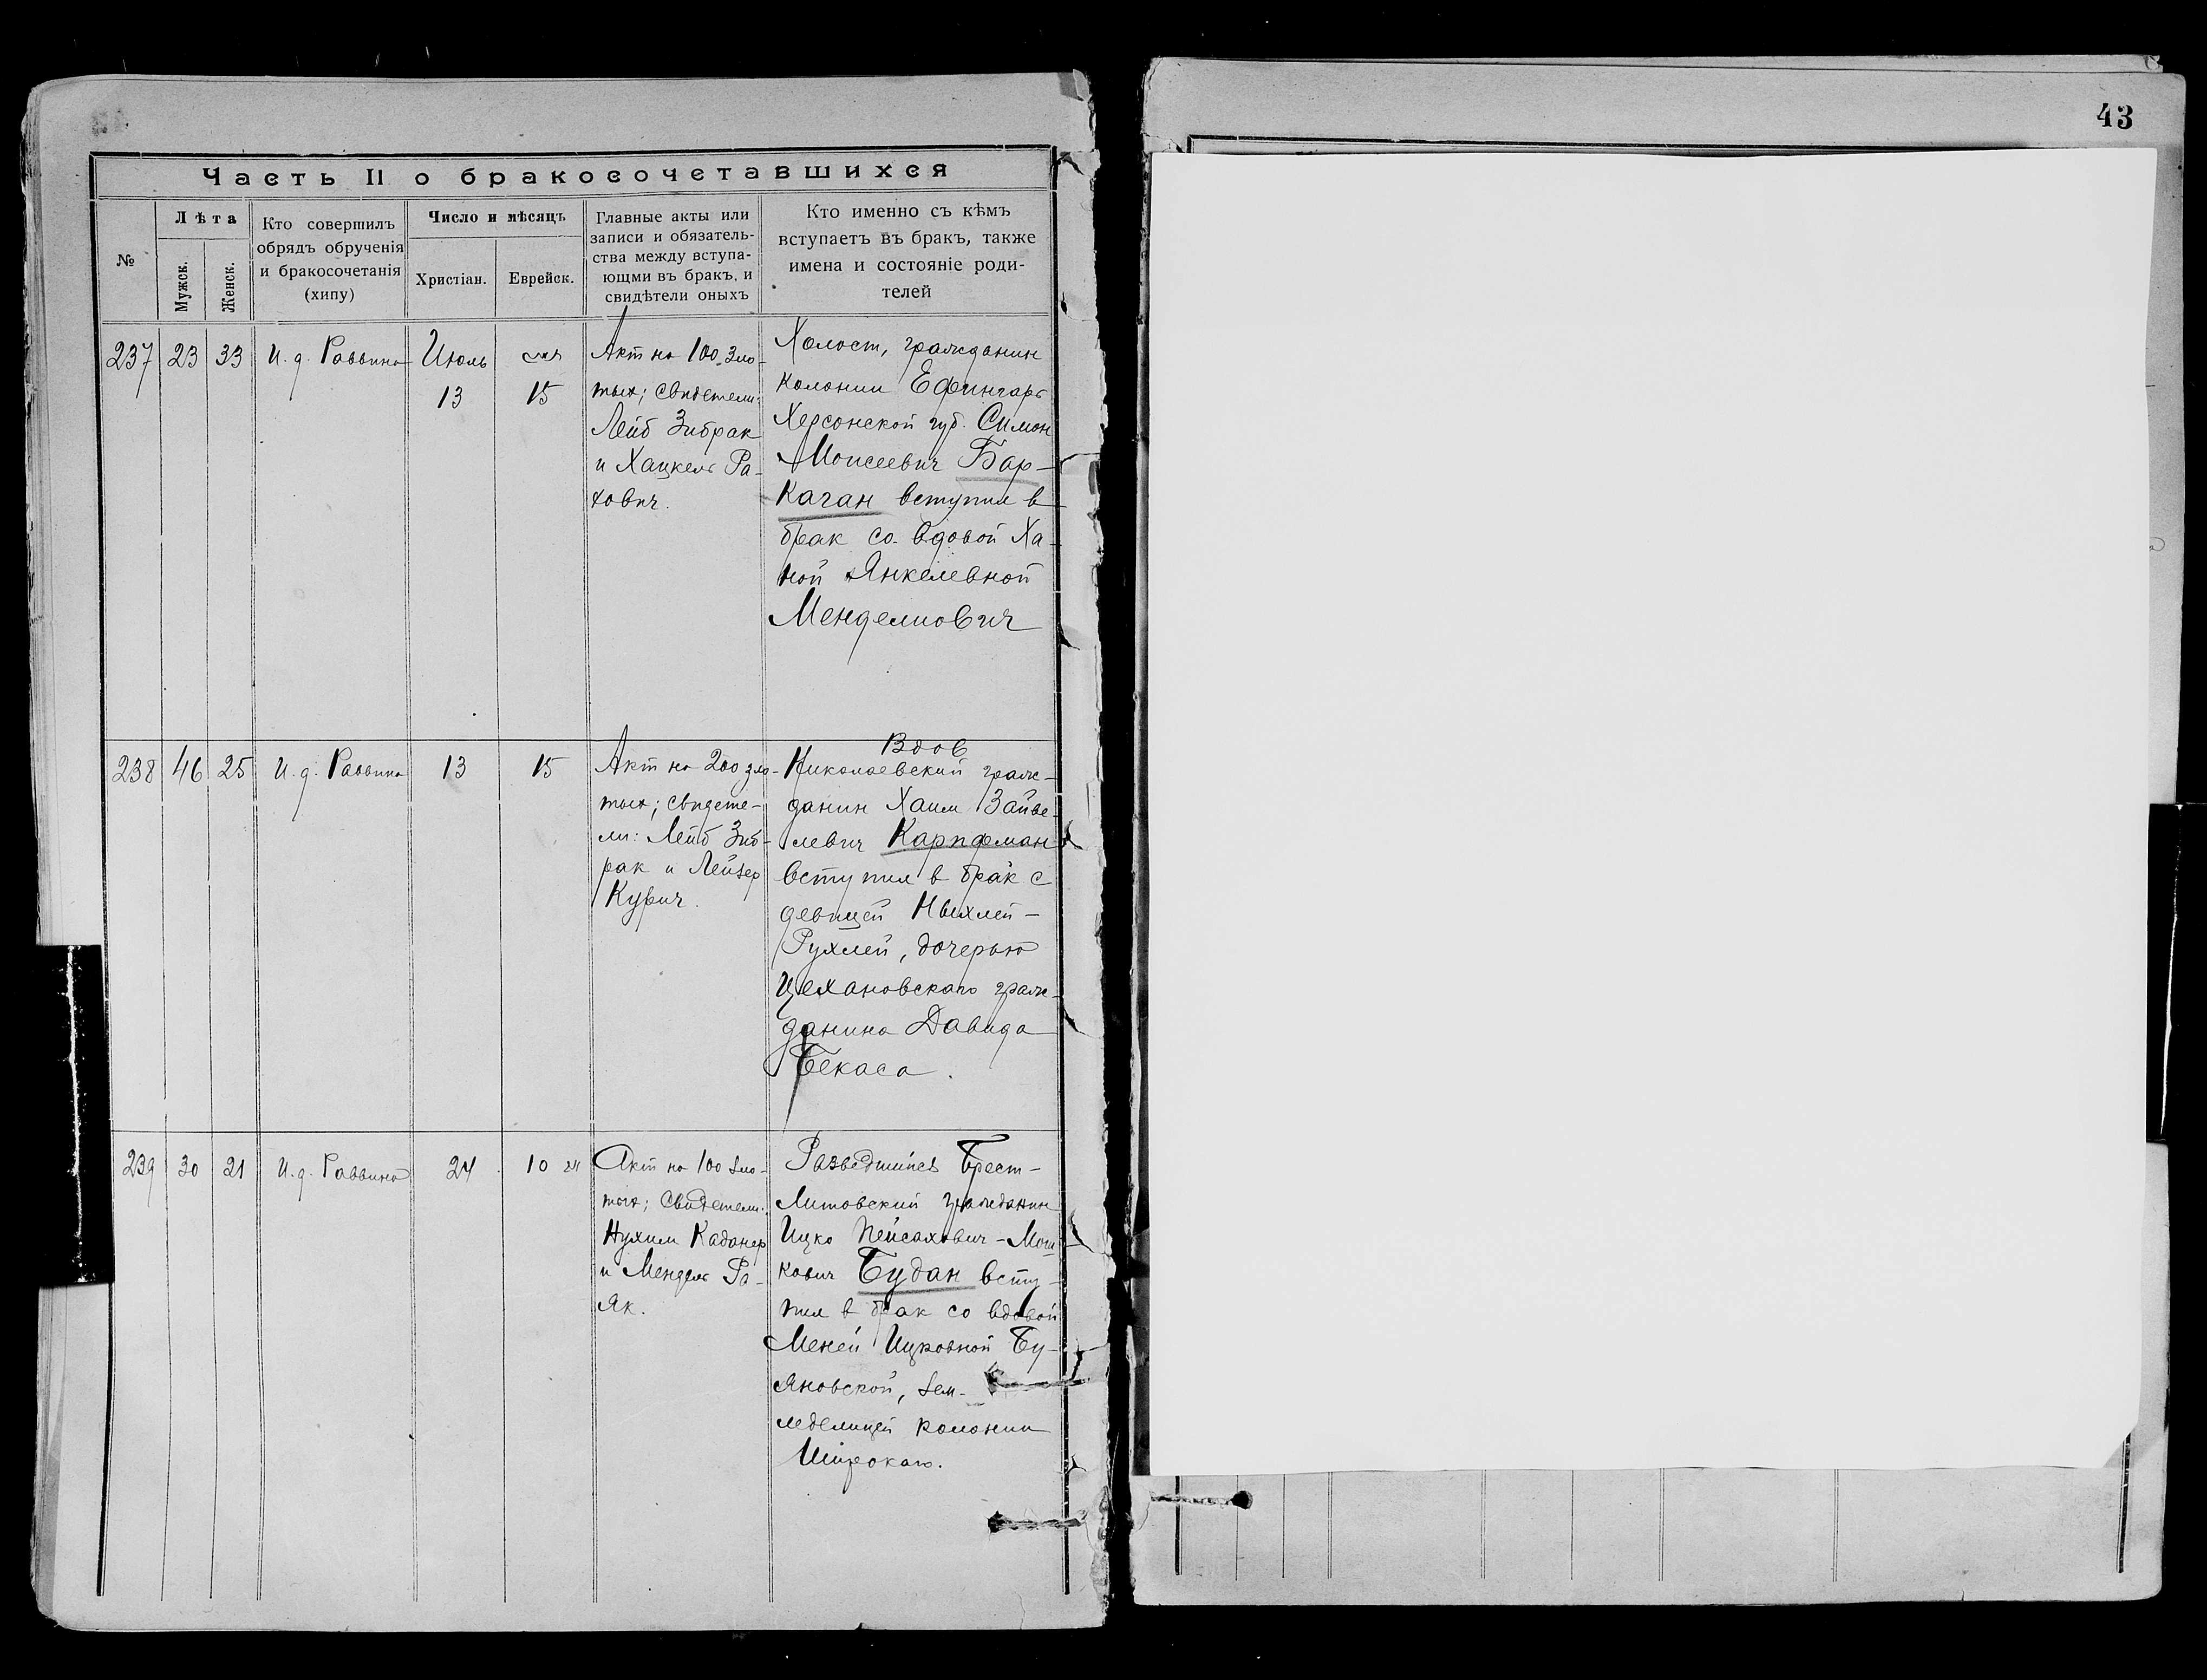 43
Часть II о бракосочетавшихся
№
Лѣта
Мужск.
Женск.
Кто совершилъ
обрядъ обрученія
и бракосочетанія
(хипу)
Число и мѣсяцъ
Христіан.
Еврейск.
Главные акты или
записи и обязатель-
ства между вступа-
ющми въ бракъ, и
свидѣтели оныхъ
Кто именно съ кѣмъ
вступаетъ въ бракъ, также
имена и состояніе роди-
телей
237
23
33
И. д. Раввина
Июль
13
15
Акт на 100 зло-
тых; свидетели:
Лейб Зибрак
и Хацкель Ра-
хович.
Холост, гражданин
колонии Ефингарь
Херсонской губ. Симон
Моисеевич Бар-
Каган вступил в
брак со вдовой Ха-
ной Янкелевной
Менделиович
238
46
25
И. д. Раввина
13
15
Акт на 200 зло-
тых; свидете-
ли: Лейб Зиб-
рак и Лейзер
Курич.
Вдов
Николаевский граж-
данин Хаим Зайве-
левич Карпфман
вступил в брак с
девицей Ныхлей-
Рухлей, дочерью
Цехановскаго граж-
данина Давида
Бекаса.
239
30
21
И. д. Раввина
24
10
Акт на 100 зло-
тых; свидетели:
Нухим Каданер
и Мендель Ра-
як.
Разведшийся Брест-
Литовский гражданин
Ицко Пейсахович-Мош-
кович Будан всту-
пил в брак со вдовой
Меней Ицковной Бу-
яновской, зем-
леделицей колонии
Широкаго.